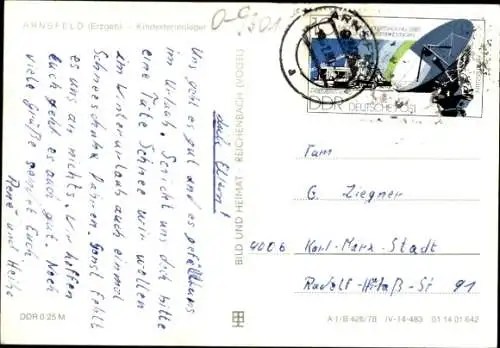 ARNSFELD (Erzgeb) - Kinderferienlager
Liebe Eltern!
Uns geht es gut und es gefällt uns
im Urlaub. Schickt uns doch bitte
eine Tüte Schnee wir wollen
im Winterurlaub auch einmal
Schneeschuhe fahren. Sonst fehlt
es uns an nichts. Wir hoffen
Euch geht es auch gut. Noch
viele Grüße sendet Euch
René und Heike
DDR 0.25 M
BILD UND HEIMAT REICHENBACH (VOGTL)
DDR
DEUTSCHE POST
Fam
G. Ziegner
4006 Karl-Marx-Stadt
91
A 1/B 426/78 IV-14-483 01 14 01 642